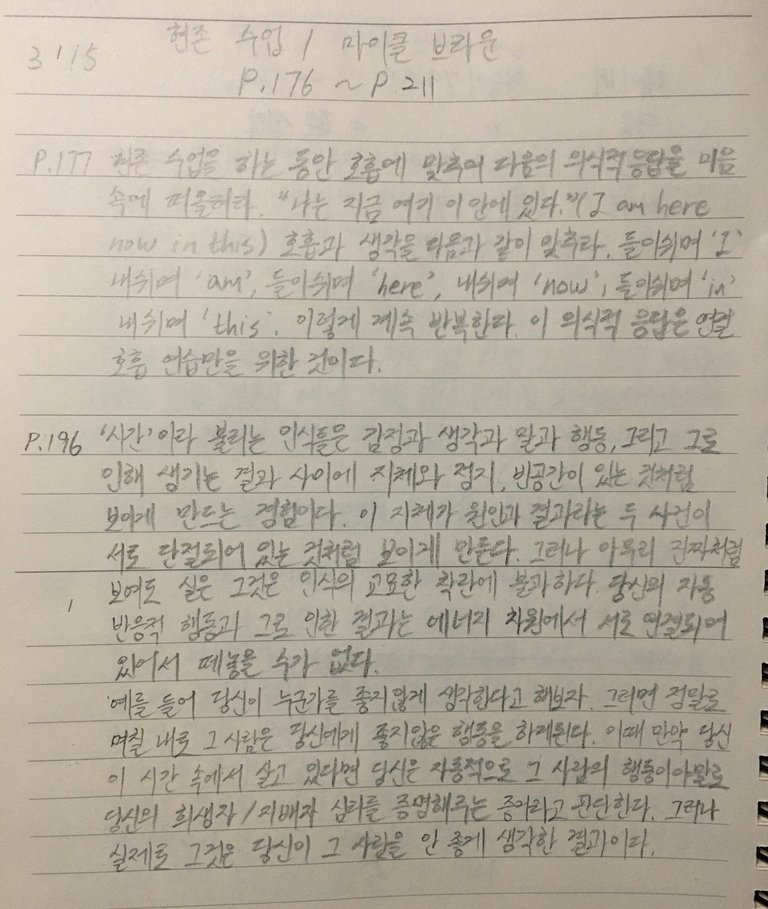 현존 수업 / 마이클 브라운
3/15
P.176 ~ P.211
P.177 현존 수업을 하는 동안 호흡에 맞추어 다음의 의식적 응답을 마음
속에 떠올려라. "나는 지금 여기 이 안에 있다."(I am here
now in this) 호흡과 생각을 다음과 같이 맞추라. 들이쉬며 'I'
내쉬며 'am', 들이쉬며 'here', 내쉬며 'now', 들이쉬며 'in'
내쉬며 'this'. 이렇게 계속 반복한다. 이 의식적 응답은 연결
호흡 연습만을 위한 것이다.
P.196 '시간'이라 불리는 인식틀은 감정과 생각과 말과 행동, 그리고 그로
인해 생기는 결과 사이에 지체와 정지, 빈공간이 있는 것처럼
보이게 만드는 경험이다. 이 지체가 원인과 결과라는 두 사건이
서로 단절되어 있는 것처럼 보이게 만든다. 그러나 아무리 진짜처럼
보여도 실은 그것은 인식의 교묘한 착란에 불과하다. 당신의 자동
반응적 행동과 그로 인한 결과는 에너지 차원에서 서로 연결되어
있어서 떼놓을 수가 없다.
예를 들어 당신이 누군가를 좋지않게 생각한다고 해보자. 그러면 정말로
며칠 내로 그 사람은 당신에게 좋지않은 행동을 하게된다. 이때 만약 당신
이 시간 속에서 살고 있다면 당신은 자동적으로 그 사람의 행동이야말로
당신의 희생자/지배자 심리를 증명해주는 증거라고 판단한다. 그러나
실제로 그것은 당신이 그 사람을 안 좋게 생각한 결과이다.